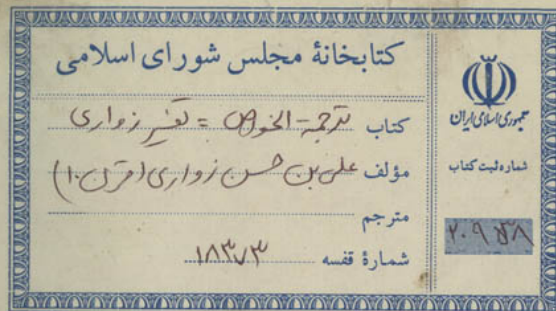 کتابخانهٔ مجلس شورای اسلامی
کتاب ترجمة الخواص = تفسیر زواری
مؤلف علی بن حسن زواری (قرن ۱۰)
مترجم
شمارهٔ قفسه ۱۸۳۷۳
جمهوری اسلامی ایران
شماره ثبت کتاب
۲۰۹۵۳۸